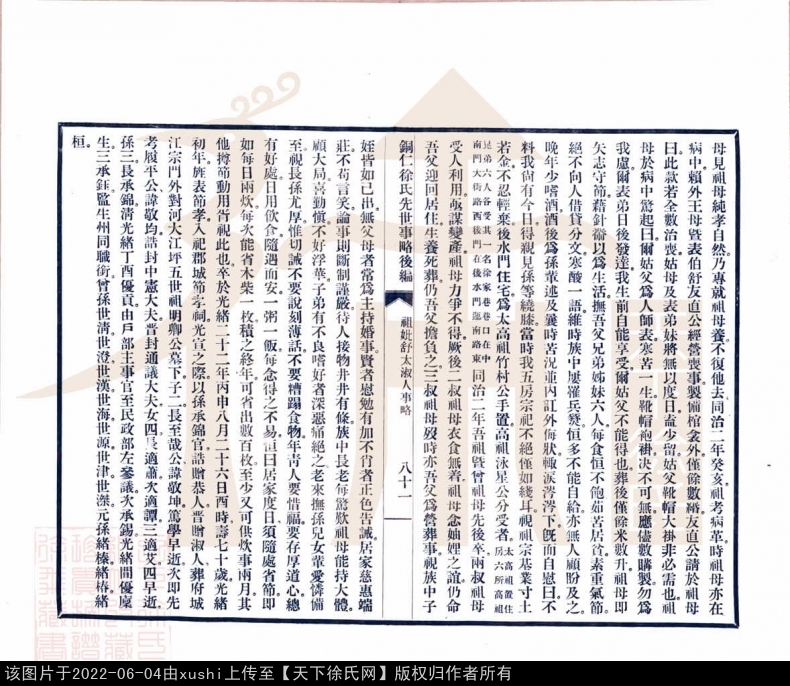 母見祖母純孝自然乃專就祖母養不復他去同治二年癸亥祖考病革時祖母亦在
病中賴外王母暨表伯舒友直公經營喪事製備棺衾外僅餘數緡友直公請於祖母
曰此款若全數治喪姑母及表弟妹將無以度日益少留姑父靴帽大褂非必需也祖
母於病中驚起曰爾姑父爲人師表寒苦一生靴帽袍褂決不可無應儘數購製勿爲
我慮爾表弟日後發達我生前自能享受爾姑父不能得也葬後僅餘米數升祖母即
矢志守節藉針黹以爲生活撫吾父兄弟姊妹六人每食恒不飽茹苦居貧素重氣節
絕不向人借貸分文寒酸一語維時族中屢罹兵燹恒多不能自給亦無人顧盼及之
晚年少嗜酒酒後爲孫輩述及曩時苦況並內訌外侮狀輒淚涔涔下旣而自慰曰不
料我尙有今日得親見孫等繞膝當時我五房宗祀不絕僅如綫耳視祖宗基業寸土
若金不忍輕棄後水門住宅爲太高祖竹村公手置高祖泳星公分受者 太高祖置住房六所高祖
兄弟六人各受其一名徐家巷巷口在中南門大街路西後門在後水門迤南路東 同治二年吾祖暨曾祖母先後卒兩叔祖母
受人利用亟謀變產祖母力爭不得厥後二叔祖母衣食無着祖母念妯娌之誼仍命
吾父迎回居住生養死葬仍吾父擔負之三叔祖母歿時亦吾父爲營葬事視族中子
銅仁徐氏先世事略後編 祖妣舒太淑人事略 八十一
姪皆如己出無父母者當爲主持婚事賢者慰勉有加不肖者正色告誡居家慈惠端
莊不苟言笑論事則斷制謹嚴待人接物井井有條族中長老每驚歎祖母能持大體
顧大局喜勤愼不好浮華子弟有不良嗜好者深惡痛絕之老來撫孫兒女輩愛憐備
至視長孫尤厚惟切誡不要說刻薄話不要糟蹋食物年靑人要惜福要存厚道心總
有好處日用飲食隨遇而安一粥一飯每念得之不易恒曰居家度日須隨處省節即
如每日兩炊每次能省木柴一枚積之終年可省出數百枚至少又可供炊事兩月其
他撙節動用胥視此也卒於光緒二十二年丙申八月二十六日酉時壽七十歲光緒
初年旌表節孝入祀郡城節孝祠光宣之際以孫承錦官誥贈恭人晋贈淑人葬府城
江宗門外對河大江坪五世祖明卿公墓下子二長至哉公諱敬坤篤學早逝次即先
考履平公諱敬均誥封中憲大夫晋封通議大夫女四長適蕭次適譚三適艾四早逝
孫三長承錦清光緒丁酉優貢由戶部主事官至民政部左參議次承錫光緒間優廩
生三承鈺監生州同職銜曾孫世清世澄世漢世海世源世津世深元孫緒榛緒椿緒
桓
该图片于2022-06-04由xushi上传至【天下徐氏网】版权归作者所有